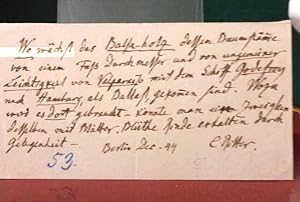 Wo wächst das Balsaholz dessen Baumstämme
von einem Fuß Durchmesser und von ungemeiner
Leichtigkeit von Valpareis mit dem Schiff Godefroy
nach Hamburg, als Ballast, gekommen sind. Wozu
wird es dort gebraucht. Könnte man ein Zweigchen
desselben mit Blätter, Blüthe Rinde erhalten durch
Gelegenheit —
Berlin Dec. 44 C Ritter.
53.